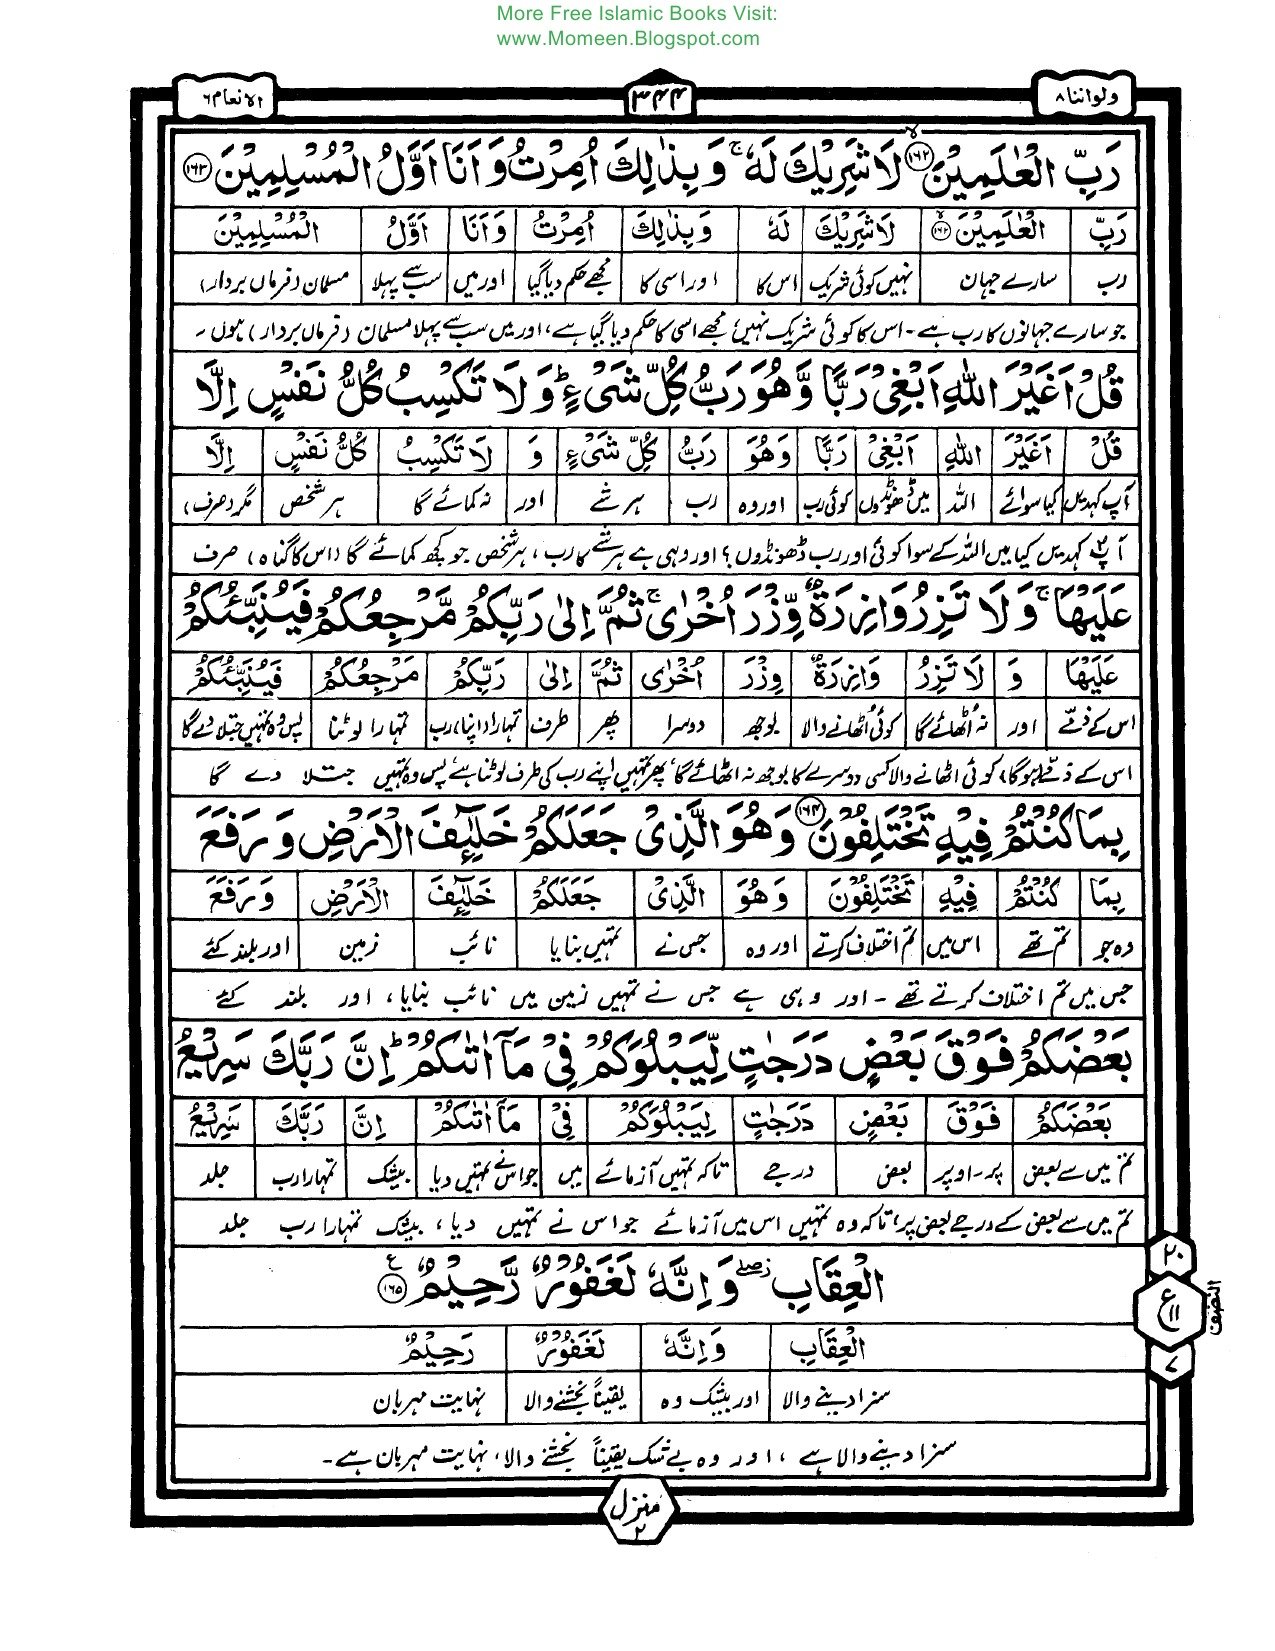 More Free Islamic Books Visit:
www.Momeen.Blogspot.com
ولواننا ۸
۳۴۴
الانعام ۶
رَبِّ الْعٰلَمِيْنَ ۙ﴿۱۶۲﴾ لَا شَرِيْكَ لَهٗ ۚ وَ بِذٰلِكَ اُمِرْتُ وَ اَنَا اَوَّلُ الْمُسْلِمِيْنَ ﴿۱۶۳﴾
رَبِّ الْعٰلَمِيْنَ ۙ﴿۱۶۲﴾ لَا شَرِيْكَ لَهٗ وَ بِذٰلِكَ اُمِرْتُ وَ اَنَا اَوَّلُ الْمُسْلِمِيْنَ
رب سارے جہان نہیں کوئی شریک اس کا اور اسی کا مجھے حکم دیا گیا اور میں سب سے پہلا مسلمان (فرماں بردار)
جو سارے جہانوں کا رب ہے - اس کا کوئی شریک نہیں، مجھے اسی کا حکم دیا گیا ہے، اور میں سب سے پہلا مسلمان (فرماں بردار) ہوں -
قُلْ اَغَيْرَ اللّٰهِ اَبْغِيْ رَبًّا وَّ هُوَ رَبُّ كُلِّ شَيْءٍ ؕ وَ لَا تَكْسِبُ كُلُّ نَفْسٍ اِلَّا
قُلْ اَغَيْرَ اللّٰهِ اَبْغِيْ رَبًّا وَّ هُوَ رَبُّ كُلِّ شَيْءٍ وَ لَا تَكْسِبُ كُلُّ نَفْسٍ اِلَّا
آپ کہدیں کیا سوائے اللہ میں ڈھونڈوں کوئی رب اور وہ رب ہر شے اور نہ کمائے گا ہر شخص مگر (صرف)
آپؐ کہدیں کیا میں اللہ کے سوا کوئی اور رب ڈھونڈوں؟ اور وہی ہے ہر شے کا رب، ہر شخص جو کچھ کمائے گا (اس کا گناہ) صرف
عَلَيْهَا ۚ وَ لَا تَزِرُ وَازِرَةٌ وِّزْرَ اُخْرٰى ۚ ثُمَّ اِلٰى رَبِّكُمْ مَّرْجِعُكُمْ فَيُنَبِّئُكُمْ
عَلَيْهَا وَ لَا تَزِرُ وَازِرَةٌ وِزْرَ اُخْرٰى ثُمَّ اِلٰى رَبِّكُمْ مَرْجِعُكُمْ فَيُنَبِّئُكُمْ
اس کے ذمّے اور نہ اُٹھائے گا کوئی اُٹھانے والا بوجھ دوسرا پھر طرف تمہارا (اپنا) رب تمہارا لوٹنا پس وہ تمہیں جتلا دے گا
اس کے ذمّے ہوگا، کوئی اٹھانے والا کسی دوسرے کا بوجھ نہ اٹھائے گا، پھر تمہیں اپنے رب کی طرف لوٹنا ہے، پس وہ تمہیں جتلا دے گا
بِمَا كُنْتُمْ فِيْهِ تَخْتَلِفُوْنَ ﴿۱۶۴﴾ وَ هُوَ الَّذِيْ جَعَلَكُمْ خَلٰٓئِفَ الْاَرْضِ وَ رَفَعَ
بِمَا كُنْتُمْ فِيْهِ تَخْتَلِفُوْنَ وَ هُوَ الَّذِيْ جَعَلَكُمْ خَلٰٓئِفَ الْاَرْضِ وَ رَفَعَ
وہ جو تم تھے اس میں تم اختلاف کرتے اور وہ جس نے تمہیں بنایا نائب زمین اور بلند کئے
جس میں تم اختلاف کرتے تھے - اور وہی ہے جس نے تمہیں زمین میں نائب بنایا، اور بلند کئے
بَعْضَكُمْ فَوْقَ بَعْضٍ دَرَجٰتٍ لِّيَبْلُوَكُمْ فِيْ مَاۤ اٰتٰىكُمْ ؕ اِنَّ رَبَّكَ سَرِيْعُ
بَعْضَكُمْ فَوْقَ بَعْضٍ دَرَجٰتٍ لِيَبْلُوَكُمْ فِيْ مَاۤ اٰتٰىكُمْ اِنَّ رَبَّكَ سَرِيْعُ
تم میں سے بعض پر - اوپر بعض درجے تاکہ تمہیں آزمائے میں جو اس نے تمہیں دیا بیشک تمہارا رب جلد
تم میں سے بعض کے درجے بعض پر، تاکہ وہ تمہیں اس میں آزمائے جو اس نے تمہیں دیا، بیشک تمہارا رب جلد
الْعِقَابِ ۖۗ وَ اِنَّهٗ لَغَفُوْرٌ رَّحِيْمٌ ﴿۱۶۵﴾ ع
الْعِقَابِ وَ اِنَّهٗ لَغَفُوْرٌ رَحِيْمٌ
سزا دینے والا اور بیشک وہ یقیناً بخشنے والا نہایت مہربان
سزا دینے والا ہے، اور وہ بے شک یقیناً بخشنے والا، نہایت مہربان ہے -
۲۰
ع ۱۱
۷
النصف
منزل ۲